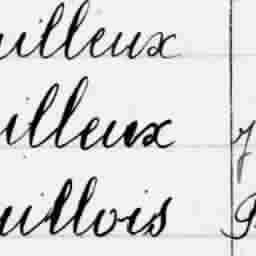 uilleux
uilleux
uillois